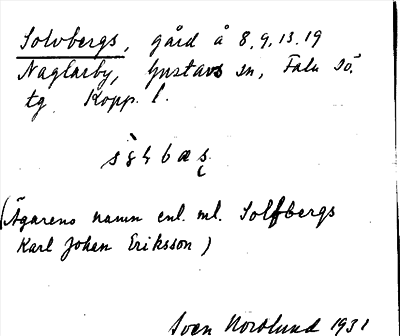 Solvbergs, gård å 8, 9, 13, 19
Naglarby, Gustavs sn, Falu sö.
tg Kopp. l.
(Ägarens namn enl. ml. Solfbergs
Karl Johan Eriksson)
Sven Norlund 1931